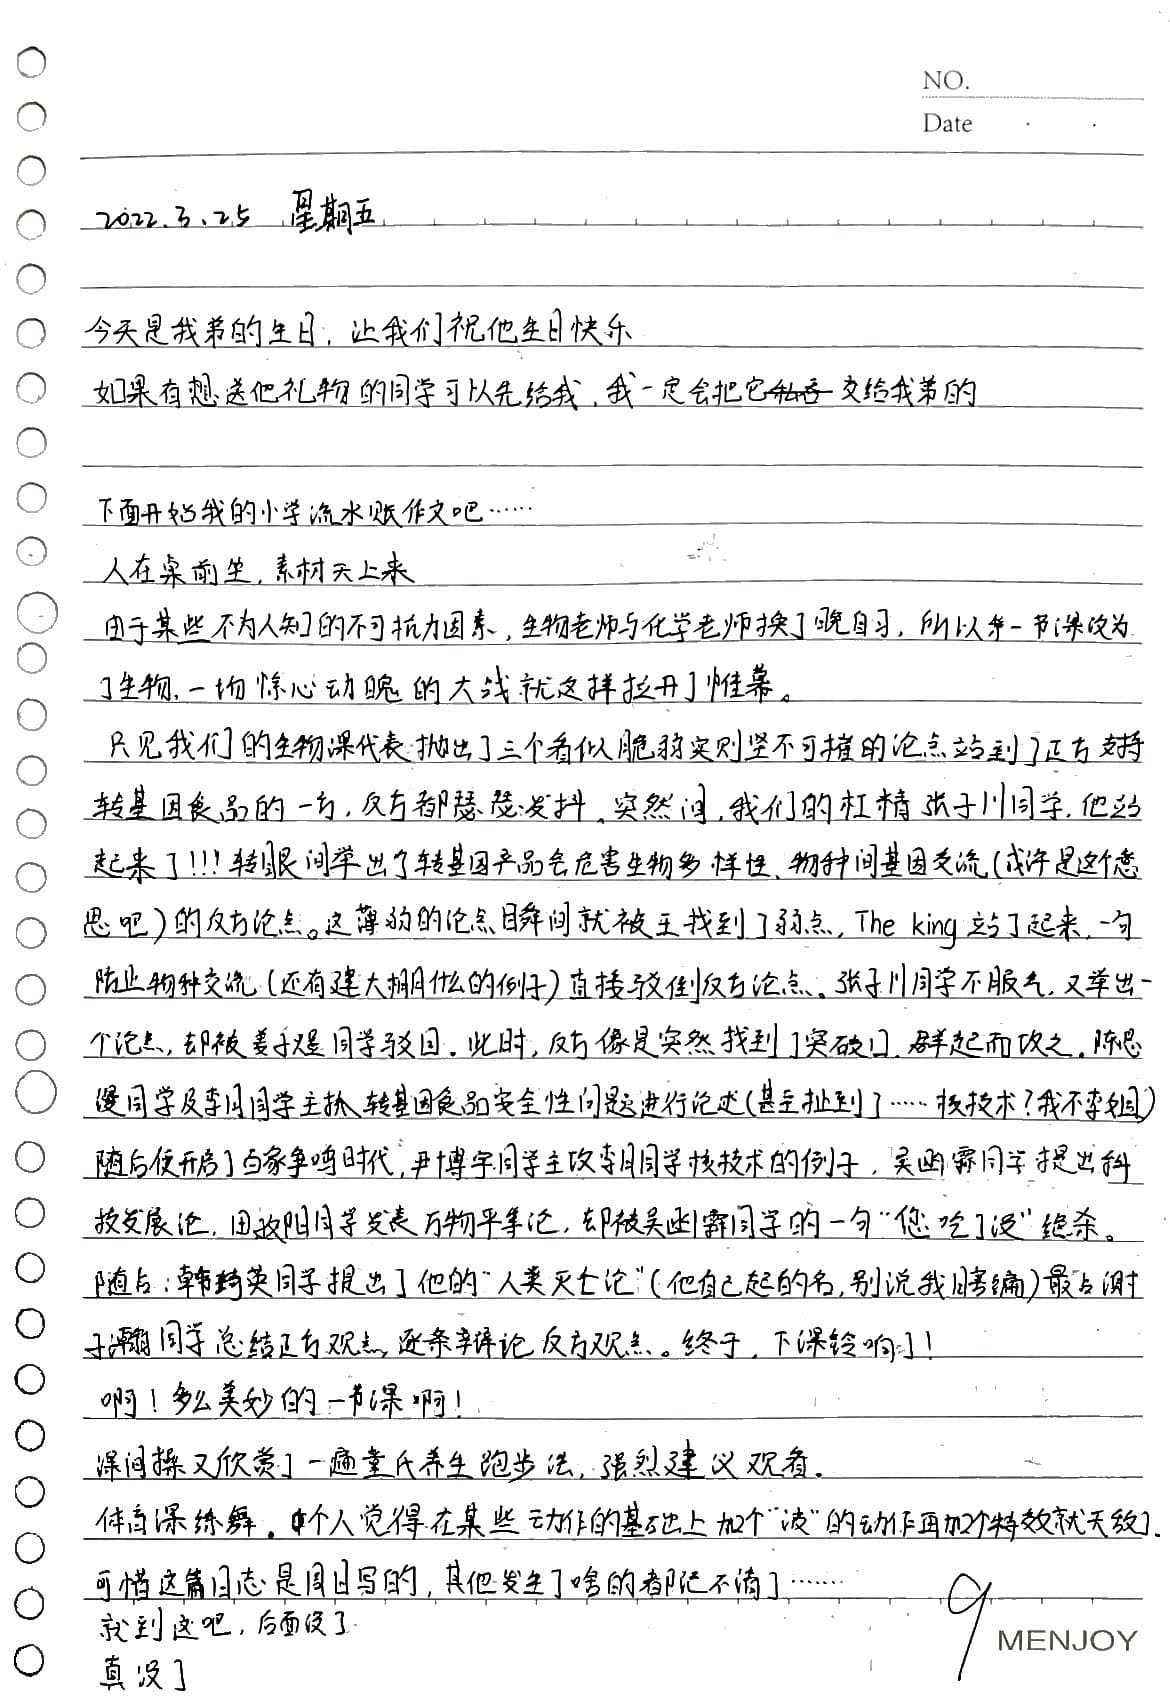 NO.
Date
2022.3.25 星期五
今天是我弟的生日，让我们祝他生日快乐
如果有想送他礼物的同学可以先给我，我一定会把它私吞交给我弟的
下面开始我的小学流水账作文吧……
人在桌前坐，素材天上来
由于某些不为人知的不可抗力因素，生物老师与化学老师换了晚自习，所以第一节课改为
了生物，一场惊心动魄的大战就这样拉开了帷幕。
只见我们的生物课代表抛出了三个看似脆弱实则坚不可摧的论点站到了正方支持
转基因食品的一方，反方都瑟瑟发抖。突然间，我们的杠精张子川同学，他站
起来了!!!转眼间举出了转基因产品会危害生物多样性、物种间基因交流(或许是这个意
思吧)的反方论点。这薄弱的论点瞬间就被王找到了弱点，The king 站了起来，一句
防止物种交流(还有建大棚什么的例子)直接驳倒反方论点。张子川同学不服气，又举出一
个论点，却被姜子煜同学驳回。此时，反方像是突然找到了突破口，群起而攻之。陈思
漫同学及李月同学主抓转基因食品安全性问题进行论述(甚至扯到了……核技术?我不李姐)
随后便开启了百家争鸣时代，尹博宇同学主攻李月同学核技术的例子，吴函霏同学提出科
技发展论，田政阳同学发表万物平等论，却被吴函霏同学的一句“您吃了没”绝杀。
随后，韩琦英同学提出了他的“人类灭亡论”(他自己起的名，别说我瞎编)最后谢
子潮同学总结正方观点，逐条辩论反方观点。终于，下课铃响了!
啊!多么美妙的一节课啊!
课间操又欣赏了一遍董氏养生跑步法，强烈建议观看。
体育课练舞。个人觉得在某些动作的基础上加个“波”的动作再加个特效就无敌了.
可惜这篇日志是周日写的，其他发生了啥的都记不清了……
就到这吧，后面没了
真没了
9
MENJOY